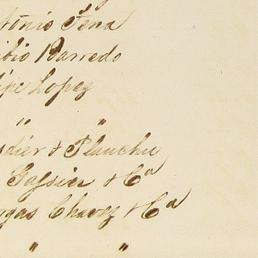 tonio Tena
ibio Barredo
ipe Lopez
" "
dier & Planche
Gassier & Ca
rgas Chavez & Ca
" "